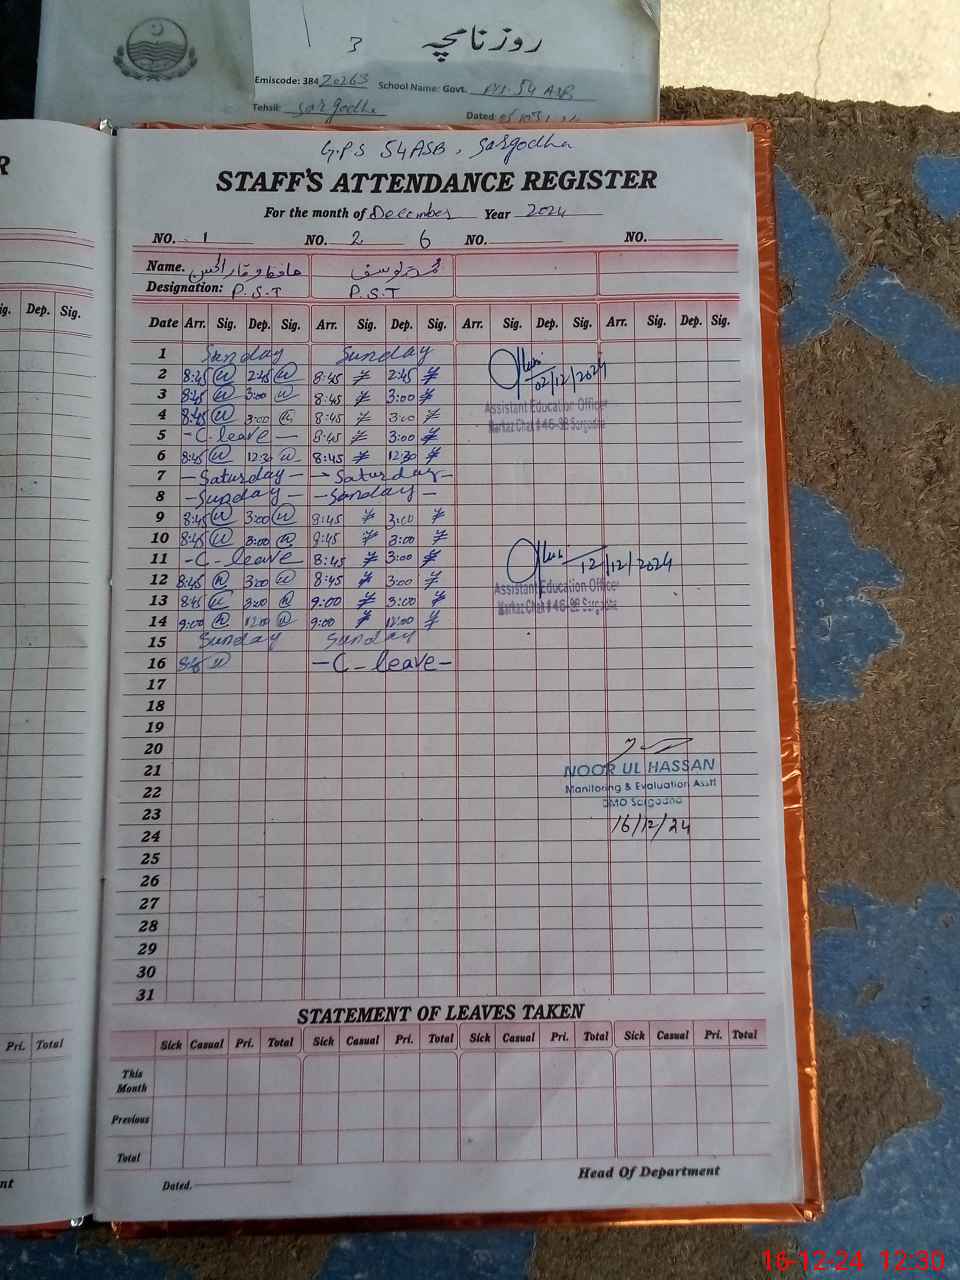 3 روزنامچہ
Emiscode: 38420263 School Name: Govt. P/S. 54 ASB
Tehsil: Sargodha Dated
G.P.S 54 ASB, Sargodha
STAFF'S ATTENDANCE REGISTER
For the month of December Year 2024
NO. 1 NO. 2 6 NO. NO.
Name. حافظ وقار محمد یوسف
Designation: P.S.T P.S.T
Date Arr. Sig. Dep. Sig. Arr. Sig. Dep. Sig. Arr. Sig. Dep. Sig. Arr. Sig. Dep. Sig.
ig. Dep. Sig.
1 Sunday Sunday
2 8:45 2:45 8:45 2:45
02/12/2024
3 8:45 3:00 8:45 3:00
Assistant Education Officer
4 8:45 3:00 8:45 3:00
Markaz Chak # 46-SB Sargodha
5 - C. leave - 8:45 3:00
6 8:45 12:30 8:45 12:30
7 - Saturday - - Saturday -
8 - Sunday - - Sunday -
9 8:45 3:00 8:45 3:00
10 8:45 3:00 8:45 3:00
11 - C. leave 8:45 3:00
12/12/2024
12 8:45 3:00 8:45 3:00
Assistant Education Officer
13 8:45 3:00 9:00 3:00
Markaz Chak # 46-SB Sargodha
14 9:00 12:00 9:00 12:00
15 Sunday Sunday
16 8:45 - C - leave -
17
18
19
20
21 NOOR UL HASSAN
22 Monitoring & Evaluation Asstt
DMO Sargodha
23 16/12/24
24
25
26
27
28
29
30
31
STATEMENT OF LEAVES TAKEN
Sick Casual Pri. Total Sick Casual Pri. Total Sick Casual Pri. Total Sick Casual Pri. Total
Pri. Total
This Month
Previous
Total
Head Of Department
Dated.
16-12-24 12:30